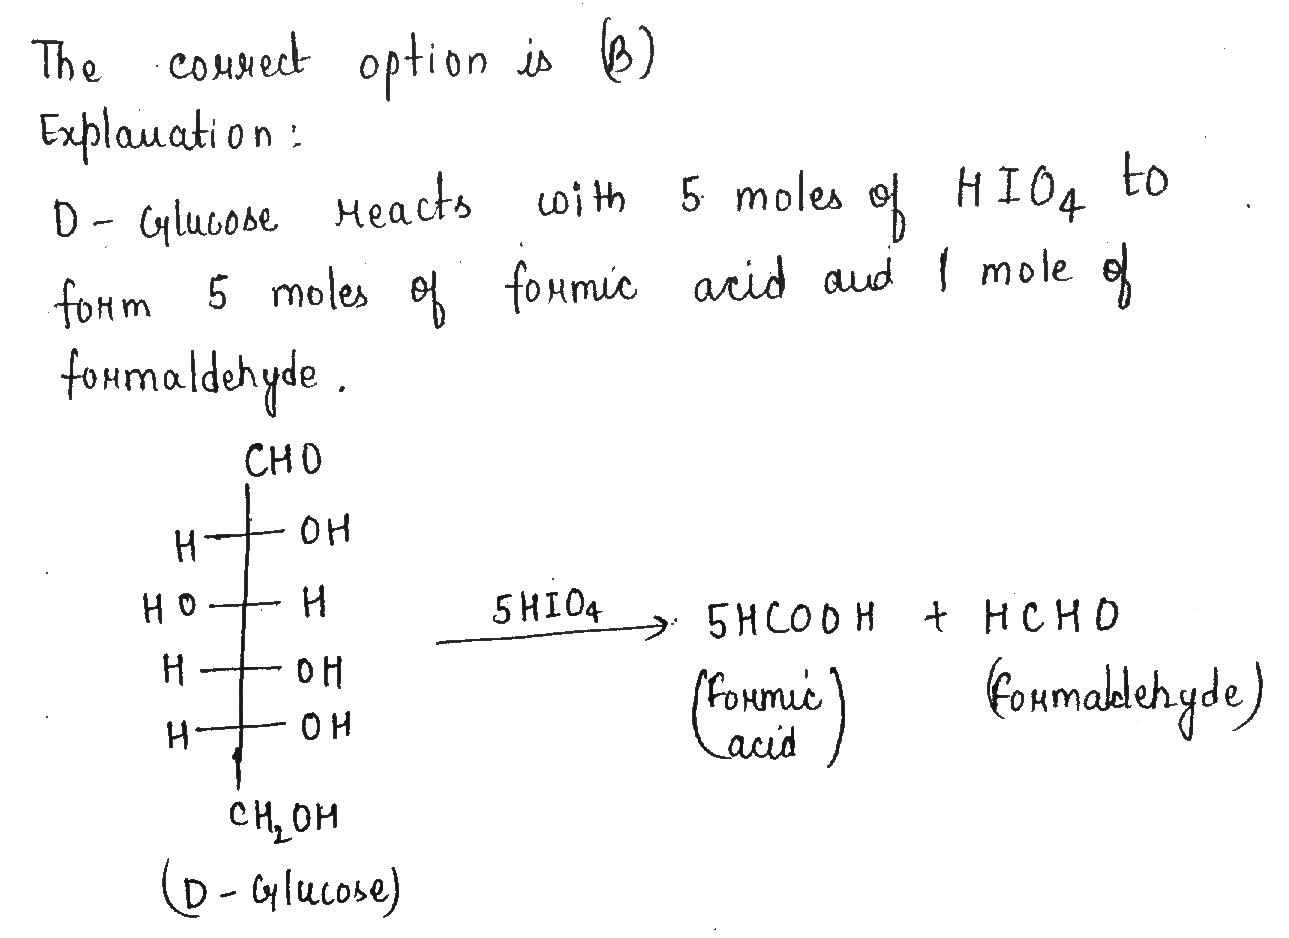 The correct option is (B)
Explanation:
D - Glucose reacts with 5 moles of HIO4 to
form 5 moles of formic acid and 1 mole of
formaldehyde.
CHO
H OH
HO H
5HIO4
5HCOOH + HCHO
H OH
(Formic acid)
(formaldehyde)
H OH
CH2OH
(D - Glucose)